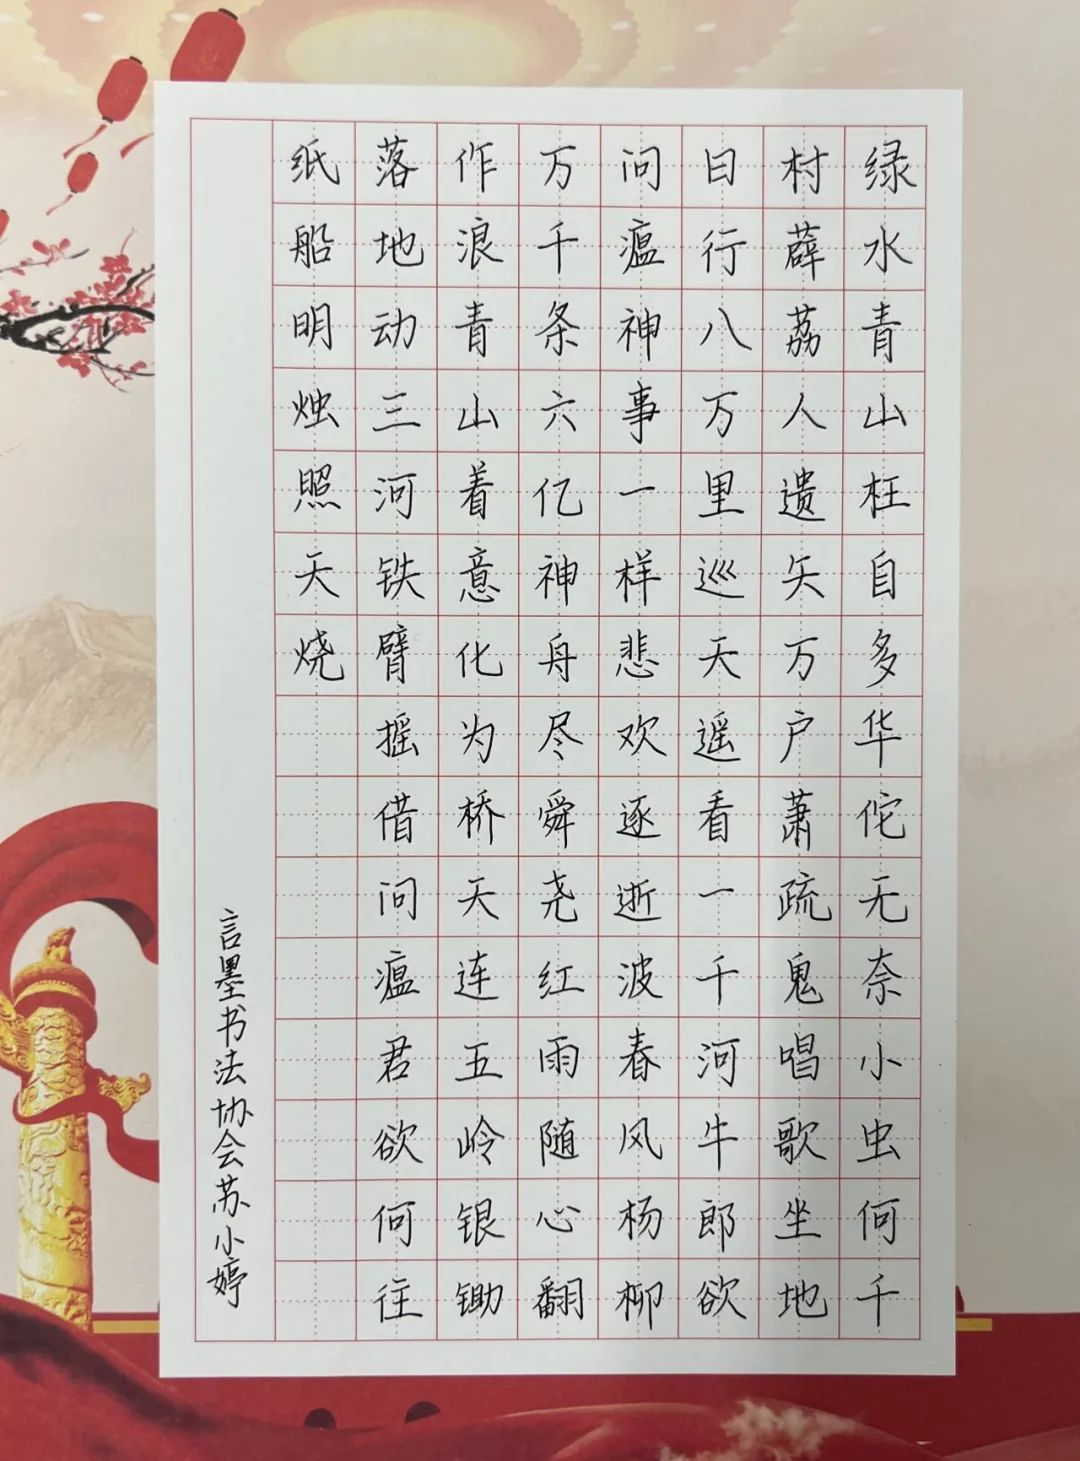 绿水青山枉自多华佗无奈小虫何千
村薜荔人遗矢万户萧疏鬼唱歌坐地
日行八万里巡天遥看一千河牛郎欲
问瘟神事一样悲欢逐逝波春风杨柳
万千条六亿神舟尽舜尧红雨随心翻
作浪青山着意化为桥天连五岭银锄
落地动三河铁臂摇借问瘟君欲何往
纸船明烛照天烧
言墨书法协会苏小婷